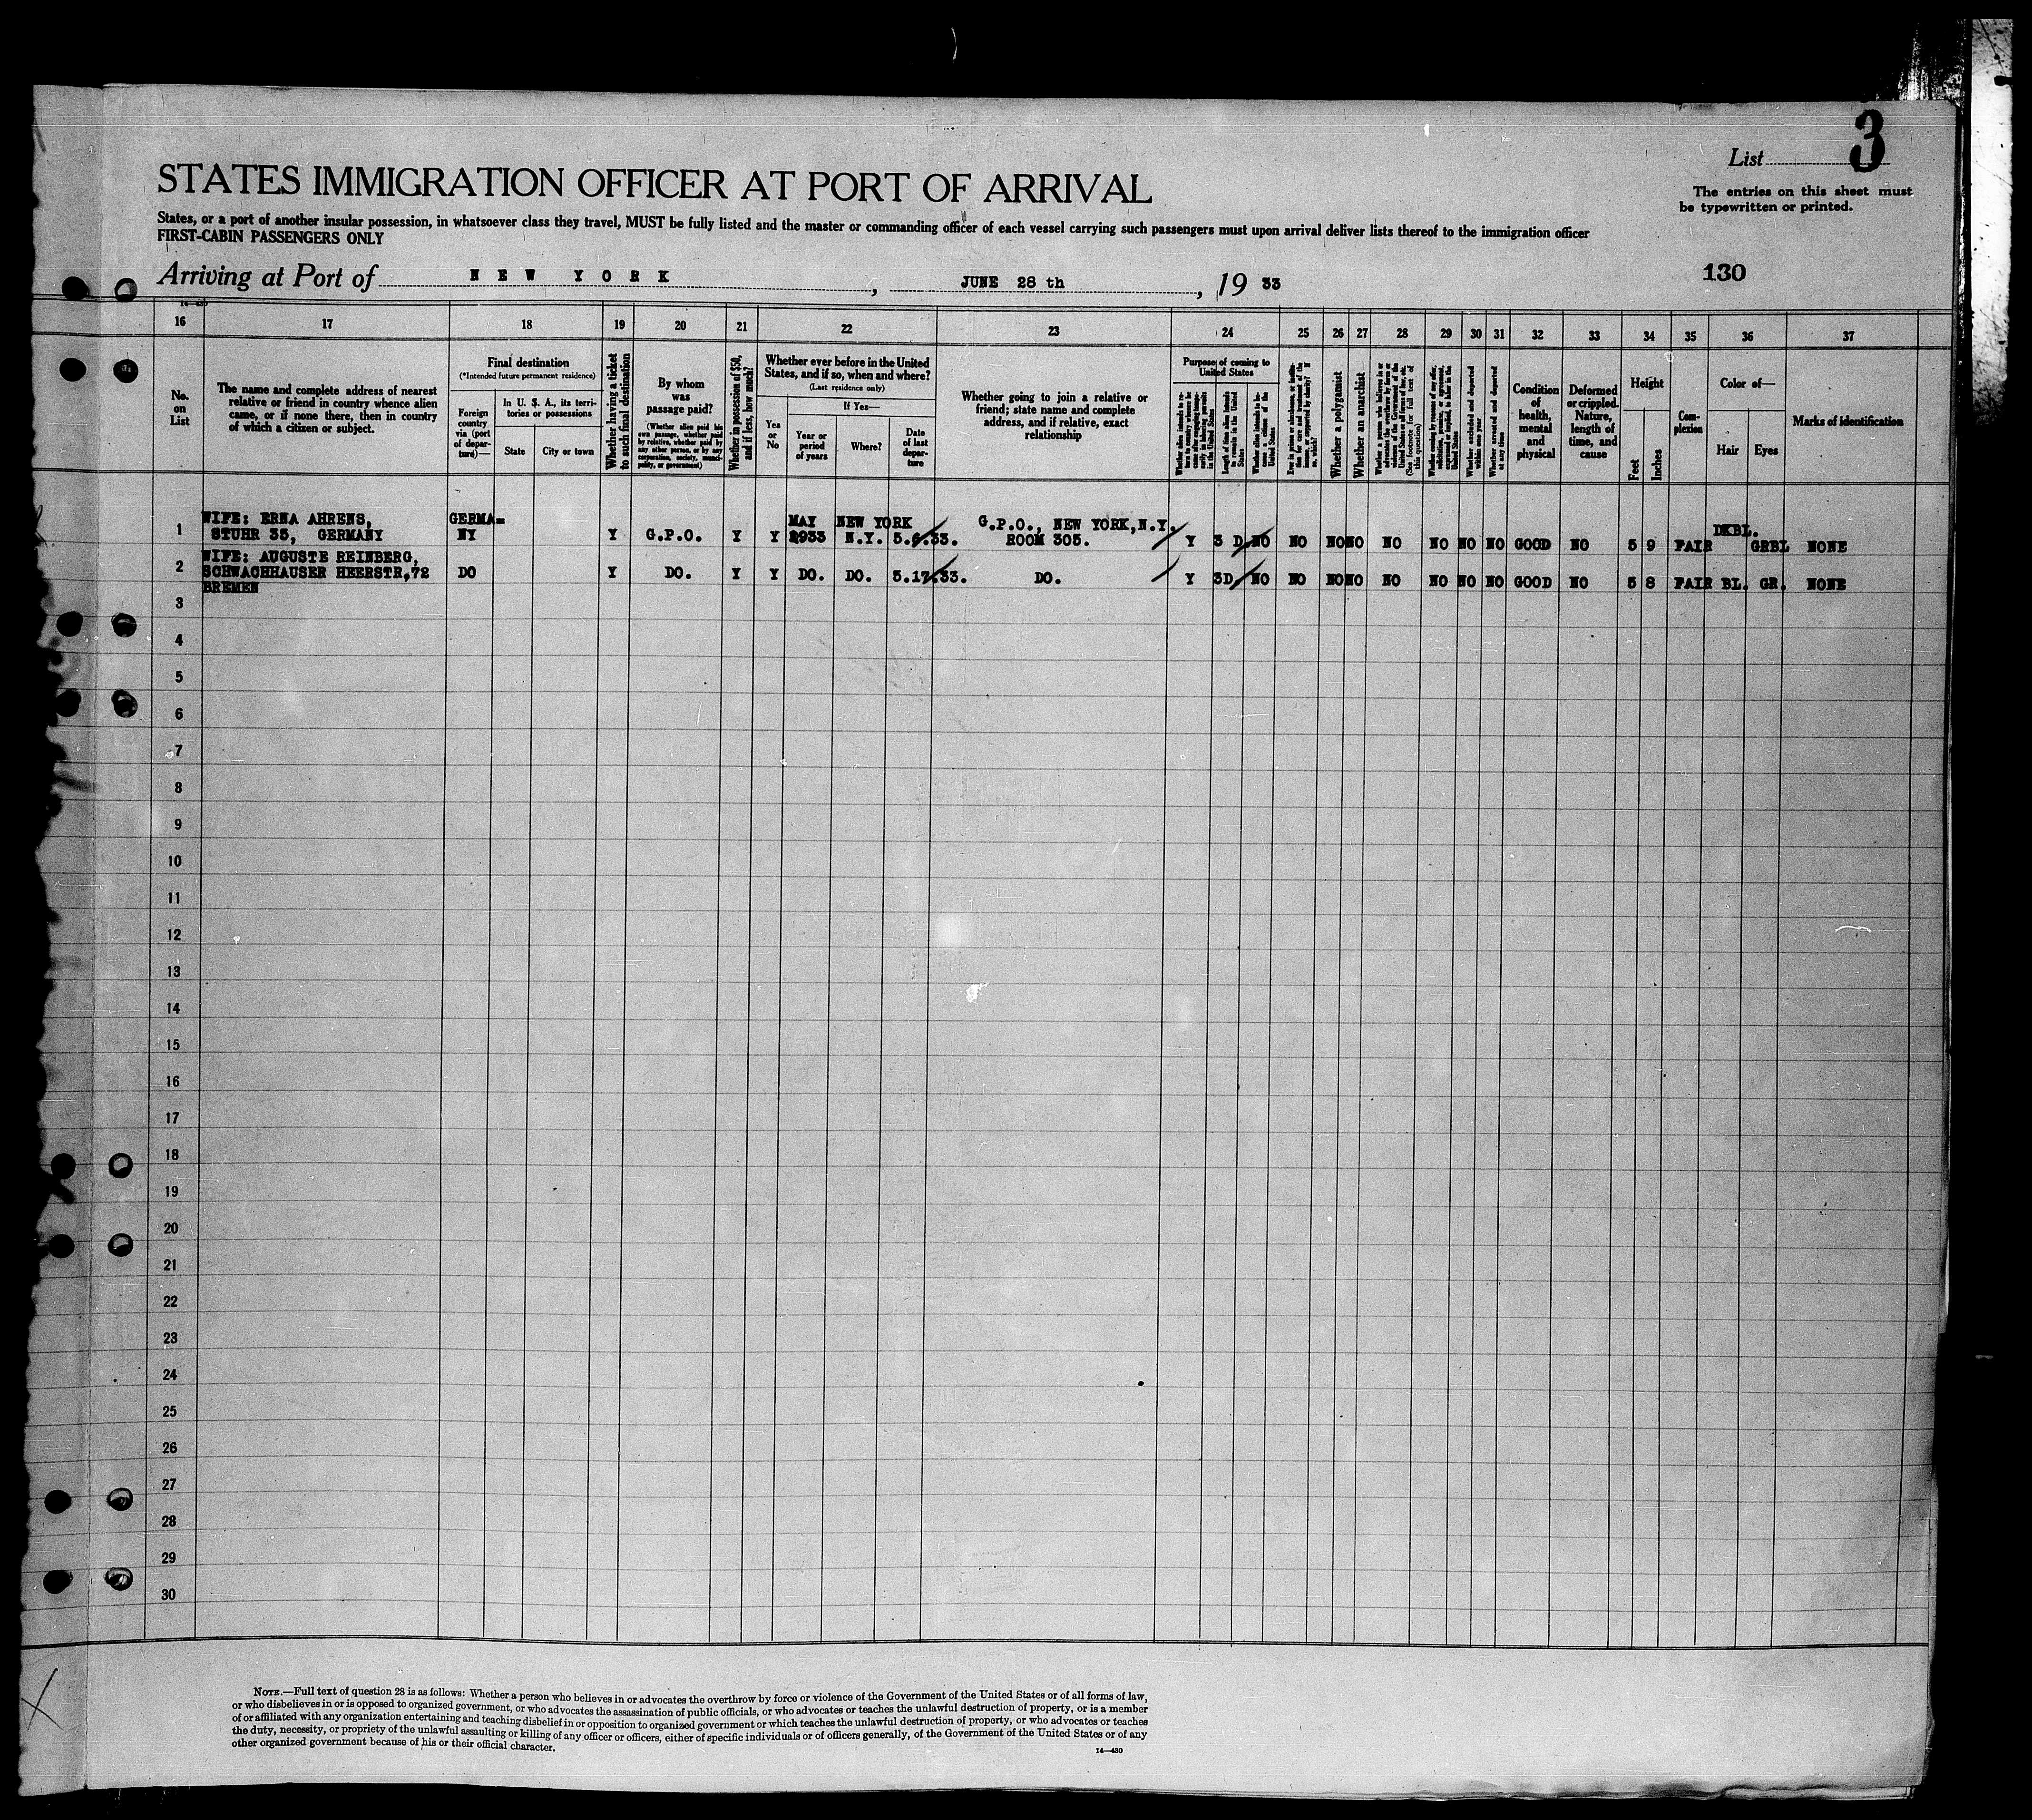 List 3
STATES IMMIGRATION OFFICER AT PORT OF ARRIVAL
The entries on this sheet must
be typewritten or printed.
States, or a port of another insular possession, in whatsoever class they travel, MUST be fully listed and the master or commanding officer of each vessel carrying such passengers must upon arrival deliver lists thereof to the immigration officer
FIRST-CABIN PASSENGERS ONLY
Arriving at Port of NEW YORK, JUNE 28 th, 19 33
130
16 17 18 19 20 21 22 23 24 25 26 27 28 29 30 31 32 33 34 35 36 37
No.
on
List
The name and complete address of nearest
relative or friend in country whence alien
came, or if none there, then in country
of which a citizen or subject.
Final destination
(*Intended future permanent residence)
Foreign
country
via (port
of depar-
ture)—
In U. S. A., its terri-
tories or possessions
State
City or town
Whether having a ticket
to such final destination
By whom
was
passage paid?
(Whether alien paid his
own passage, whether paid
by relative, whether paid by
any other person, or by any
corporation, society, munici-
pality, or government)
Whether in possession of $50,
and if less, how much?
Whether ever before in the United
States, and if so, when and where?
(Last residence only)
Yes
or
No
If Yes—
Year or
period
of years
Where?
Date
of last
depar-
ture
Whether going to join a relative or
friend; state name and complete
address, and if relative, exact
relationship
Purpose of coming to
United States
Length of time alien intends
to remain in the United
States
Whether alien intends to be-
come a citizen of the
United States
Whether a polygamist
Whether an anarchist
(See footnote for full text of
this question)
Whether excluded and deported
within one year
Whether arrested and deported
at any time
Condition
of
health,
mental
and
physical
Deformed
or crippled.
Nature,
length of
time, and
cause
Height
Feet
Inches
Com-
plexion
Color of—
Hair
Eyes
Marks of identification
1 WIFE: ERNA AHRENS, GERMA- MAY NEW YORK G.P.O., NEW YORK,N.Y. DKBL.
STUHR 35, GERMANY NY Y G.P.O. Y Y 1933 N.Y. 33. ROOM 305. Y 3 D NO NO NO NO NO NO NO NO GOOD NO 5 9 FAIR GRBL NONE
WIFE: AUGUSTE REINBERG,
2 SCHWACHHAUSER HEERSTR,72 DO Y DO. Y Y DO. DO. 5.17.33. DO. Y 3D NO NO NO NO NO NO NO NO GOOD NO 5 8 FAIR BL. GR. NONE
BREMEN
3
4
5
6
7
8
9
10
11
12
13
14
15
16
17
18
19
20
21
22
23
24
25
26
27
28
29
30
NOTE.—Full text of question 28 is as follows: Whether a person who believes in or advocates the overthrow by force or violence of the Government of the United States or of all forms of law,
or who disbelieves in or is opposed to organized government, or who advocates the assassination of public officials, or who advocates or teaches the unlawful destruction of property, or is a member
of or affiliated with any organization entertaining and teaching disbelief in or opposition to organized government or which teaches the unlawful destruction of property, or who advocates or teaches
the duty, necessity, or propriety of the unlawful assaulting or killing of any officer or officers, either of specific individuals or of officers generally, of the Government of the United States or of any
other organized government because of his or their official character.
14—430